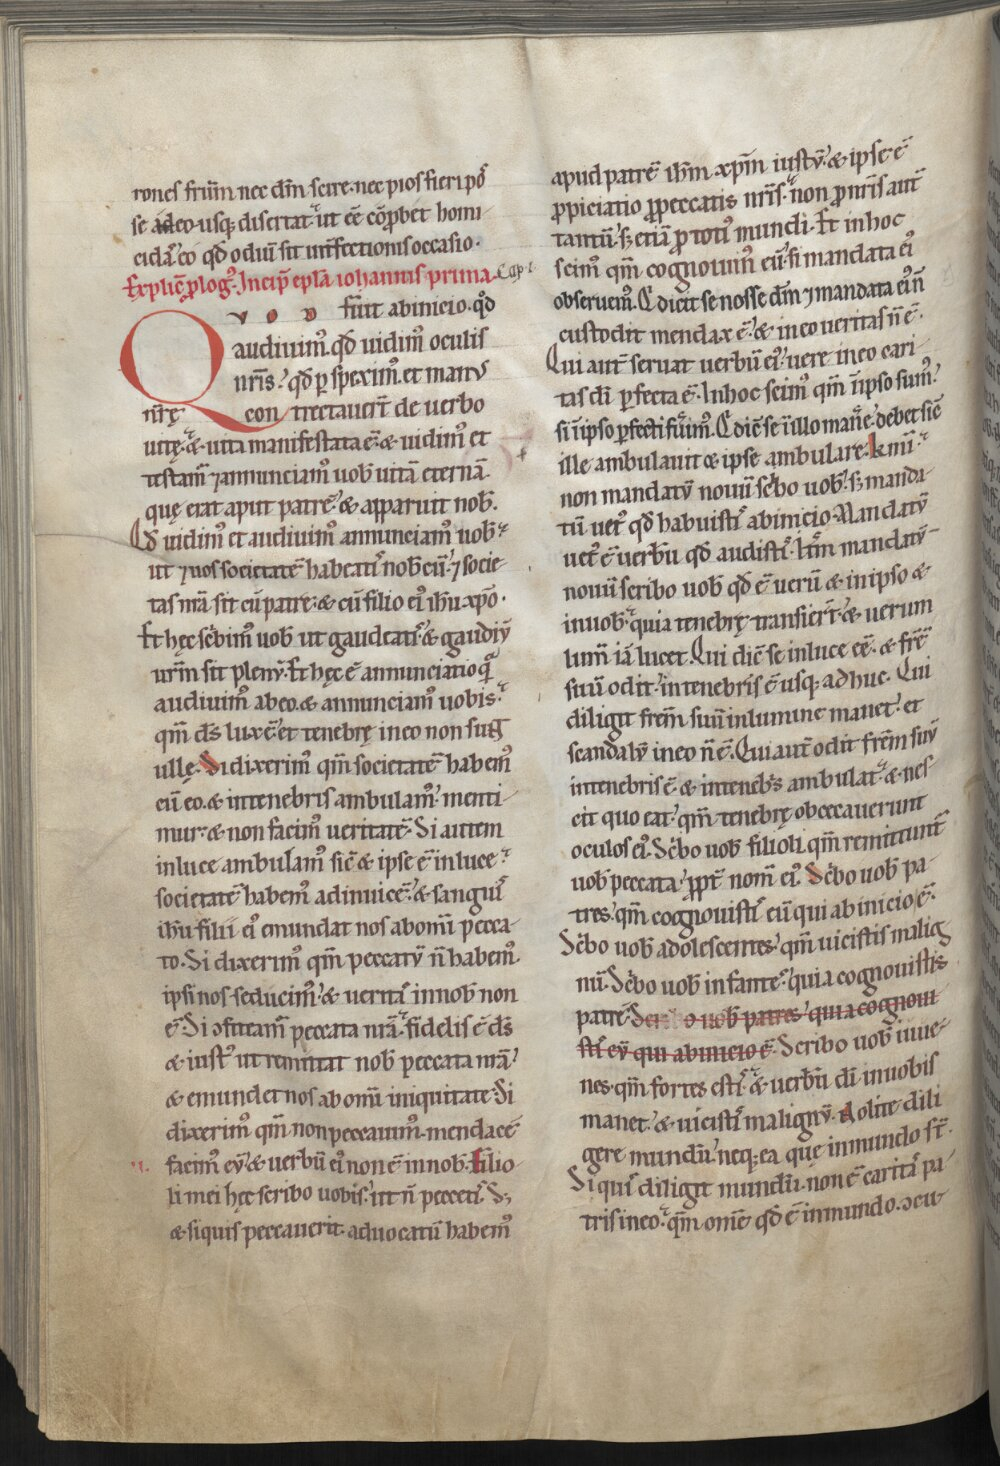 rones frūm nec dm̄ scire. nec pios fieri pos̄
se adeo usq; disertat. ut eē cōp̄bet homi
cidā. eo qd̄ odiū sit int̄fectionis occasio.
Explic̄ p̄log. Incip̄ ep̄la iohannis prima. Cap i
QVOD fuit ab inicio. qd̄
audiuim᷒. qd̄ uidim᷒ oculis
nr̄is. qd̄ p̄spexim᷒. et manꝰ
nr̄ę contrectauer̄t de uerbo
uitę. & uita manifestata ē. & uidim᷒ et
testam᷒ ⁊ annunciam᷒ uob̄ uitā eternā.
quę erat aput patrē. & apparuit nob̄.
Qd̄ uidim᷒ et audiuim᷒ annunciam᷒ uob̄.
ut ⁊ uos societatē habeatis nob̄cū. ⁊ socie
tas nr̄a sit cū patre. & cū filio ei᷒ ih̄u xp̄o.
Et hęc sc̄bim᷒ uob̄ ut gaudeatis. & gaudiū
ur̄m sit plenū. Et hęc ē annunciatio quā
audiuim᷒ ab eo. & annunciam᷒ uobis.
qm̄ ds̄ lux ē. et tenebrę in eo non sunt
ullę. Si dixerim᷒ qm̄ societatē habem᷒
cū eo. & in tenebris ambulam᷒. menti
mur. & non facim᷒ ueritatē. Si autem
in luce ambulam᷒ sic̄ & ipse ē in luce.
societatē habem᷒ adinuicē. & sanguis
ih̄u filii ei᷒ emundat nos ab om̄i pecca
to. Si dixerim᷒ qm̄ peccatū n̄ habem᷒.
ipsi nos seducim᷒. & ueritas in nob̄ non
ē. Si ofiteam᷒ peccata nr̄a. fidelis ē ds̄
& iust᷒ ut remittat nob̄ peccata nr̄a.
& emundet nos ab om̄i iniquitate. Si
dixerim᷒ qm̄ non peccauim᷒. mendacē
ii. facim᷒ eū. & uerbū ei᷒ non ē in nob̄. Filio
li mei hęc scribo uobis. ut n̄ peccetis. S;
& si quis peccauerit. aduocatū habem᷒
apud patrē ih̄m xp̄m iustū. & ipse ē
p̄piciatio p̄ peccatis nr̄is. non p̄ nr̄is aut̄
tantū. s; etiā p̄ toti᷒ mundi. Et in hoc
scim᷒ qm̄ cognouim᷒ eū. si mandata ei᷒
obseruem᷒. Q dicit se nosse dm̄ ⁊ mandata ei᷒ n̄
custodit mendax ē. & in eo ueritas n̄ ē.
Qui aut̄ seruat uerbū ei᷒. uere in eo cari
tas di̅ perfecta ē. In hoc scim᷒ qm̄ in ipso sum᷒.
si in ipso perfecti fuerim᷒. Q dic̄ se in illo manere. debet sic̄
ille ambulauit & ipse ambulare. K̄mi
non mandatū nouū sc̄bo uob̄. s; manda
tū uet᷒ qd̄ habuistis ab inicio. Mandatū
uet᷒ ē uerbū qd̄ audistis. It̄m mandatū
nouū scribo uob̄ qd̄ ē uerū & in ipso &
in uob̄. quia tenebrę transier̄t. & uerum
lum̄ iā lucet. Qui dic̄ se in luce eē. & fr̄em
suū odit. in tenebris ē usq; adhuc. Qui
diligit frem̄ suū in lumine manet. et
scandalū in eo n̄ ē. Qui aut̄ odit frem̄ suū
in tenebris ē. & in tenebris ambulat. & nes
cit quo eat. qm̄ tenebrę obcecauerunt
oculos ei᷒. Sc̄bo uob̄ filioli qm̄ remittunt̄
uob̄ peccata. ppt̄ nom̄ ei᷒. Sc̄bo uob̄ pa
tres. qm̄ cognouistis eū qui ab inicio ē.
Sc̄bo uob̄ adolescentes. qm̄ uicistis malig
nū. Sc̄bo uob̄ infantes. quia cognouistis
patrē. Scribo uob̄ patres quia cognoui
stis eū qui ab inicio ē. Scribo uob̄ iuue
nes. qm̄ fortes estis. & uerbū di̅ in uobis
manet. & uicistis malignū. Nolite dili
gere mundū. neq; ea quę in mundo st̄.
Si quis diligit mundū. non ē caritas pa
tris in eo. qm̄ om̄e qd̄ ē in mundo. ɔcu